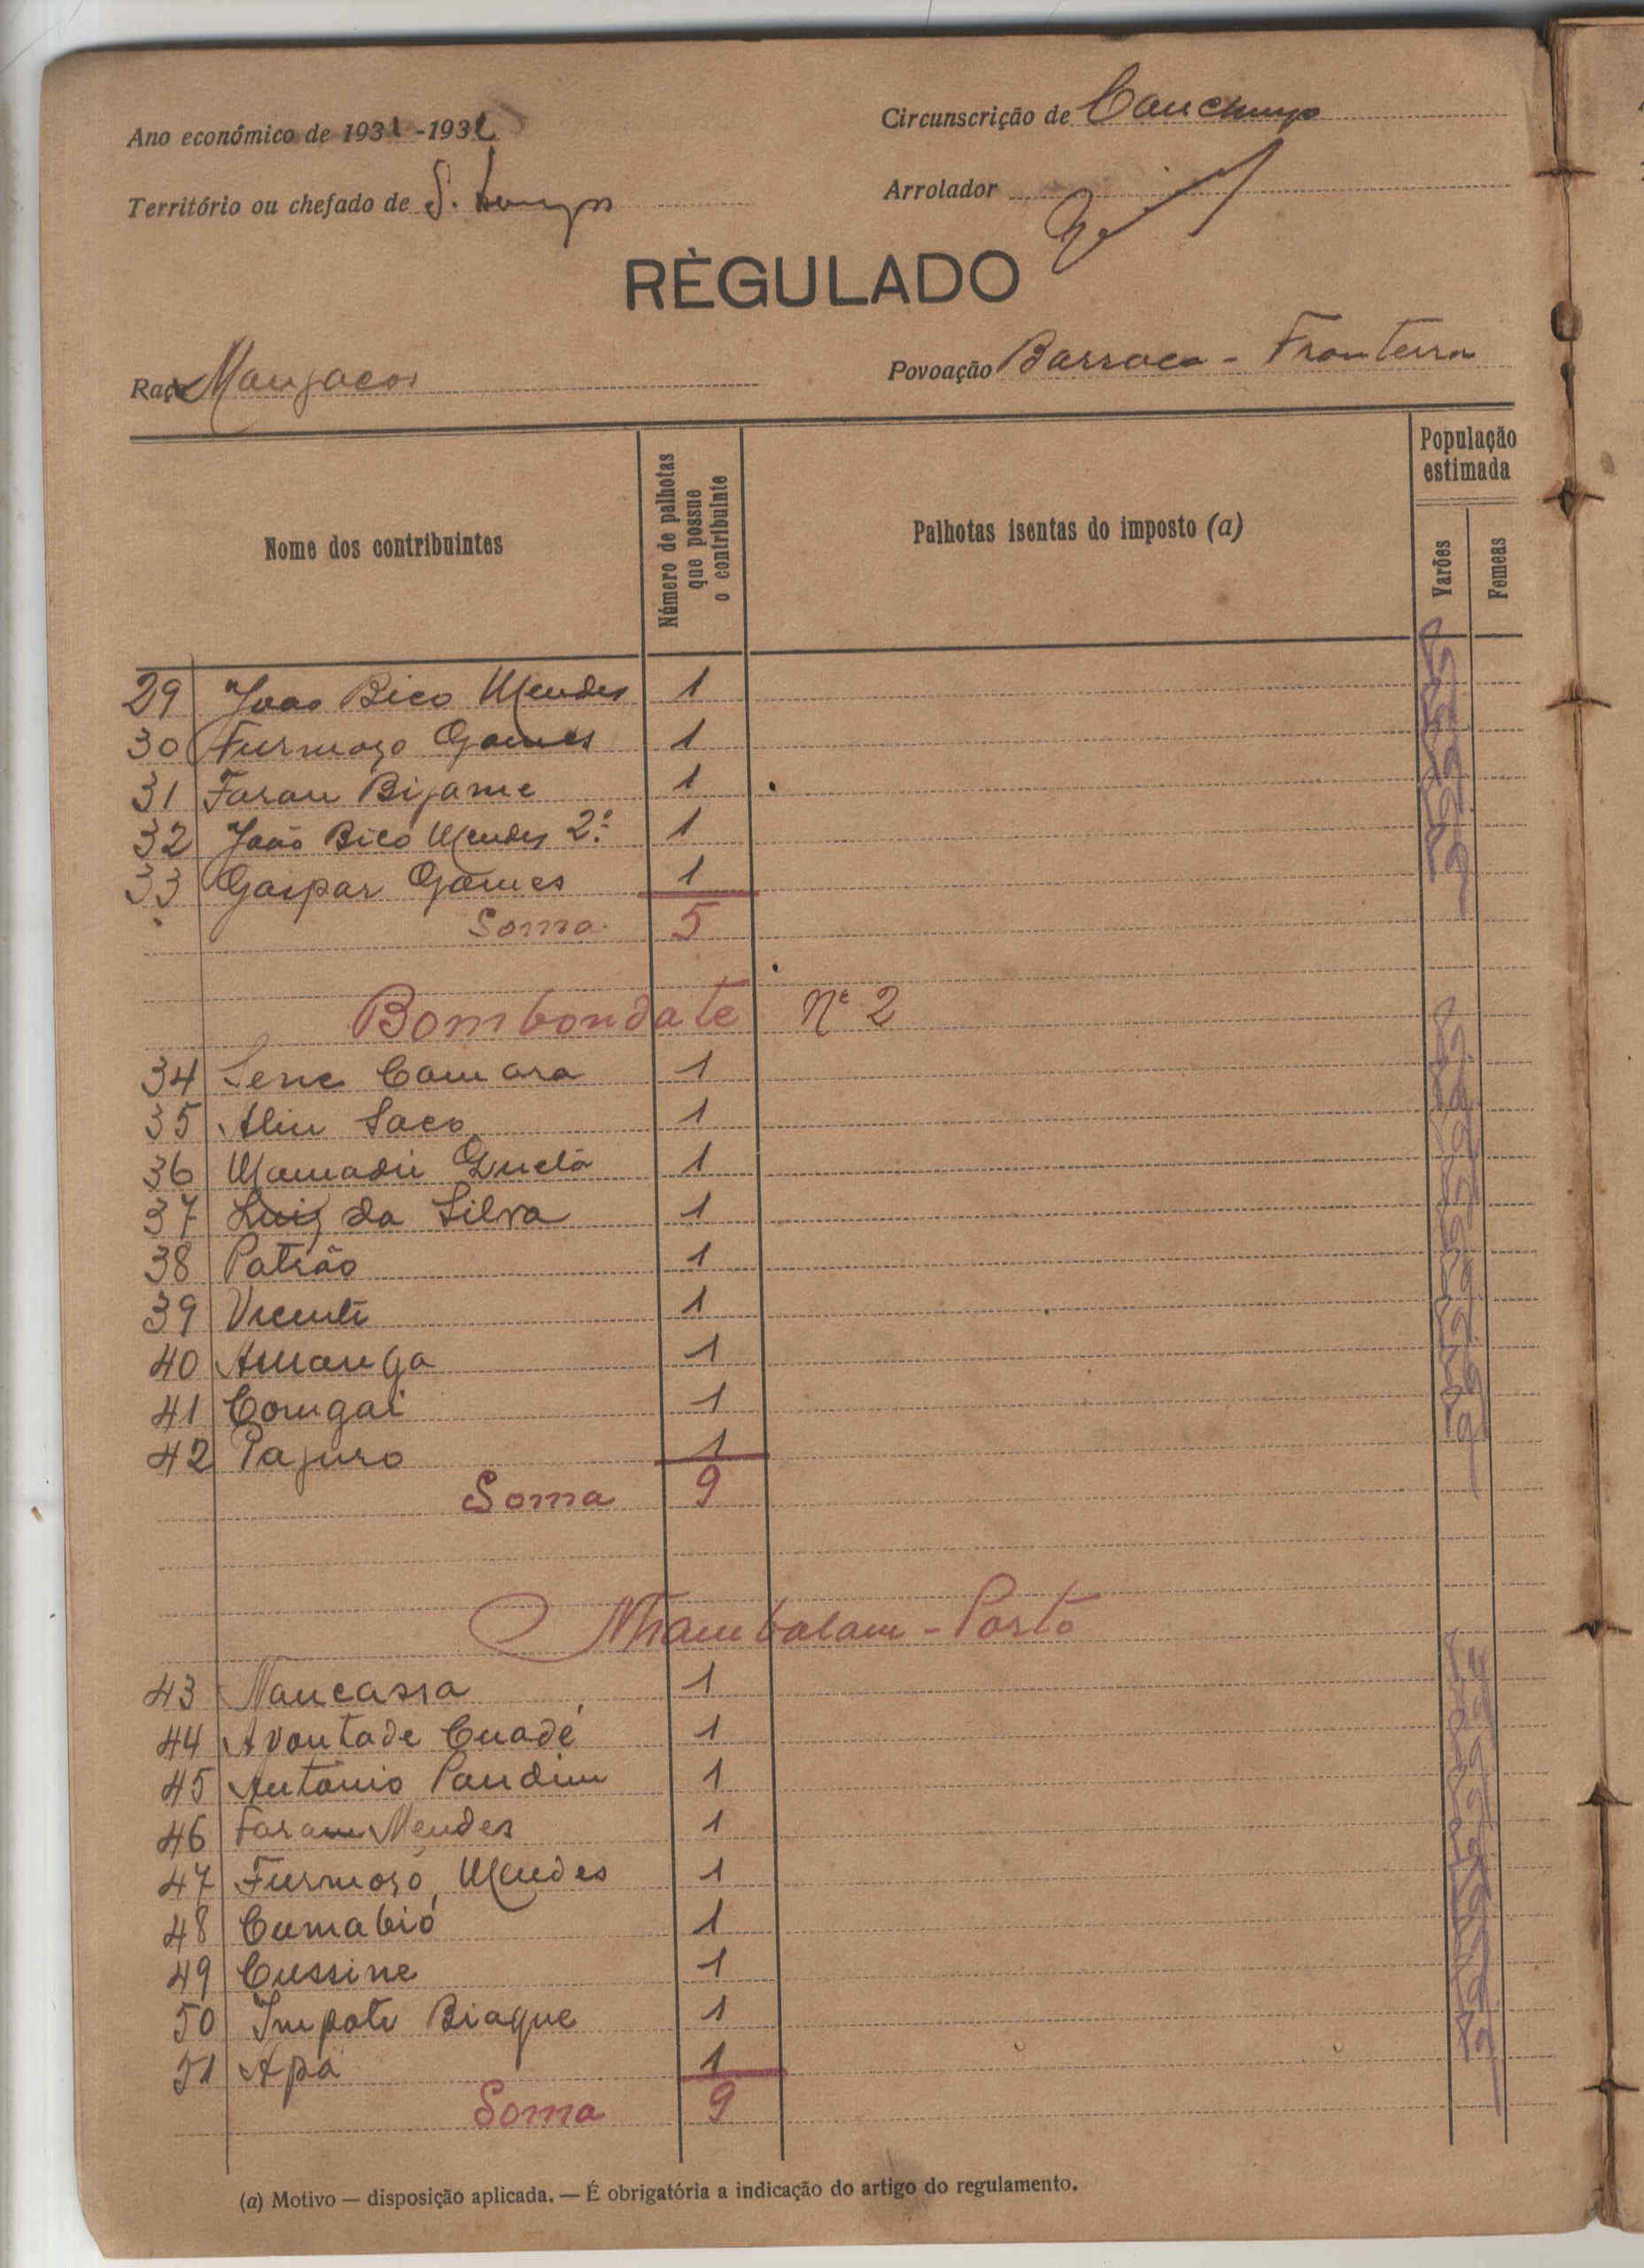 Ano económico de 1931-193
Circunscrição de Canchungo
Território ou chefado de S. Domingos
Arrolador
RÈGULADO
Raça Manjacos
Povoação Barraca - Fronteira
Nome dos contribuintes
Número de palhotas que possue o contribuinte
Palhotas isentas do imposto (a)
População estimada
Varões
Femeas
29 João Bico Mendes 1
30 Furmozo Gomes 1
31 Faran Bijame 1
32 João Bico Mendes 2º 1
33 Gaspar Gomes 1
Soma 5
Bombondate Nº 2
34 Sene Camara 1
35 Aliu Saco 1
36 Mamadú 1
37 Luiz da Silva 1
38 Patrão 1
39 Vicente 1
40 Amanga 1
41 Comgai 1
42 Pajuro 1
Soma 9
Nhambalam - Porto
43 Nancassa 1
44 Avontade Cuadé 1
45 António Pandim 1
46 Faram Mendes 1
47 Furmozo Mendes 1
48 Cumabió 1
49 Cussine 1
50 Impote Biague 1
51 Apa 1
Soma 9
(a) Motivo — disposição aplicada. — É obrigatória a indicação do artigo do regulamento.